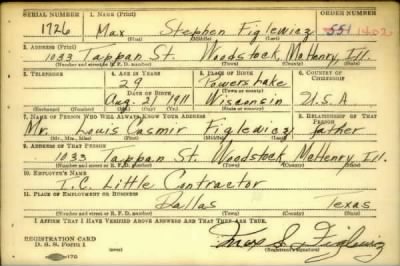 SERIAL NUMBER 1. NAME (Print) ORDER NUMBER
1726 Max Stephen Figlewicz 551 1402
(First) (Middle) (Last)
2. ADDRESS (Print)
1033 Tappan St. Woodstock, McHenry Ill.
(Number and street or R. F. D. number) (Town) (County) (State)
3. TELEPHONE 4. AGE IN YEARS 5. PLACE OF BIRTH 6. COUNTRY OF CITIZENSHIP
29 Powers Lake
DATE OF BIRTH (Town or county)
Aug. 21 1911 Wisconsin U.S.A
(Mo.) (Day) (Yr.) (State or country)
7. NAME OF PERSON WHO WILL ALWAYS KNOW YOUR ADDRESS 8. RELATIONSHIP OF THAT PERSON
Mr. Louis Casmir Figlewicz father
(Mr., Mrs., Miss) (First) (Middle) (Last)
9. ADDRESS OF THAT PERSON
1033 Tappan St. Woodstock McHenry, Ill.
(Number and street or R. F. D. number) (Town) (County) (State)
10. EMPLOYER'S NAME
I.C. Little Contractor
11. PLACE OF EMPLOYMENT OR BUSINESS
Dallas Texas
(Number and street or R. F. D. number) (Town) (County) (State)
I AFFIRM THAT I HAVE VERIFIED ABOVE ANSWERS AND THAT THEY ARE TRUE.
REGISTRATION CARD
D. S. S. Form 1 Max S. Figlewicz